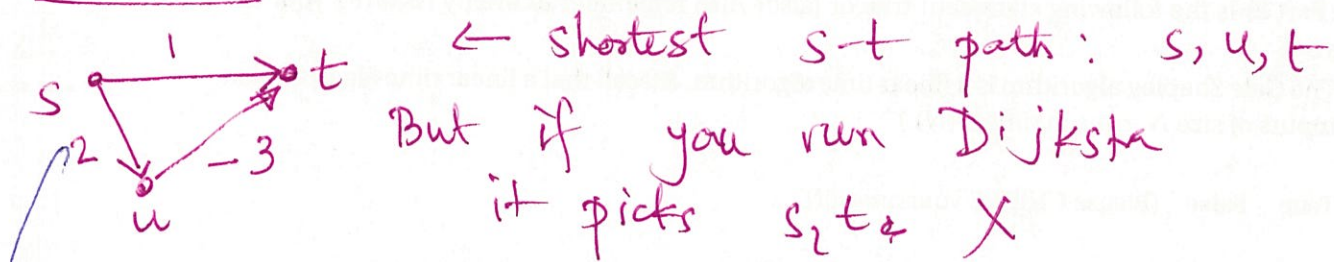 1 ← shortest s-t path: s, u, t
s t
But if you run Dijksta
2 -3
it picks s, t X
u